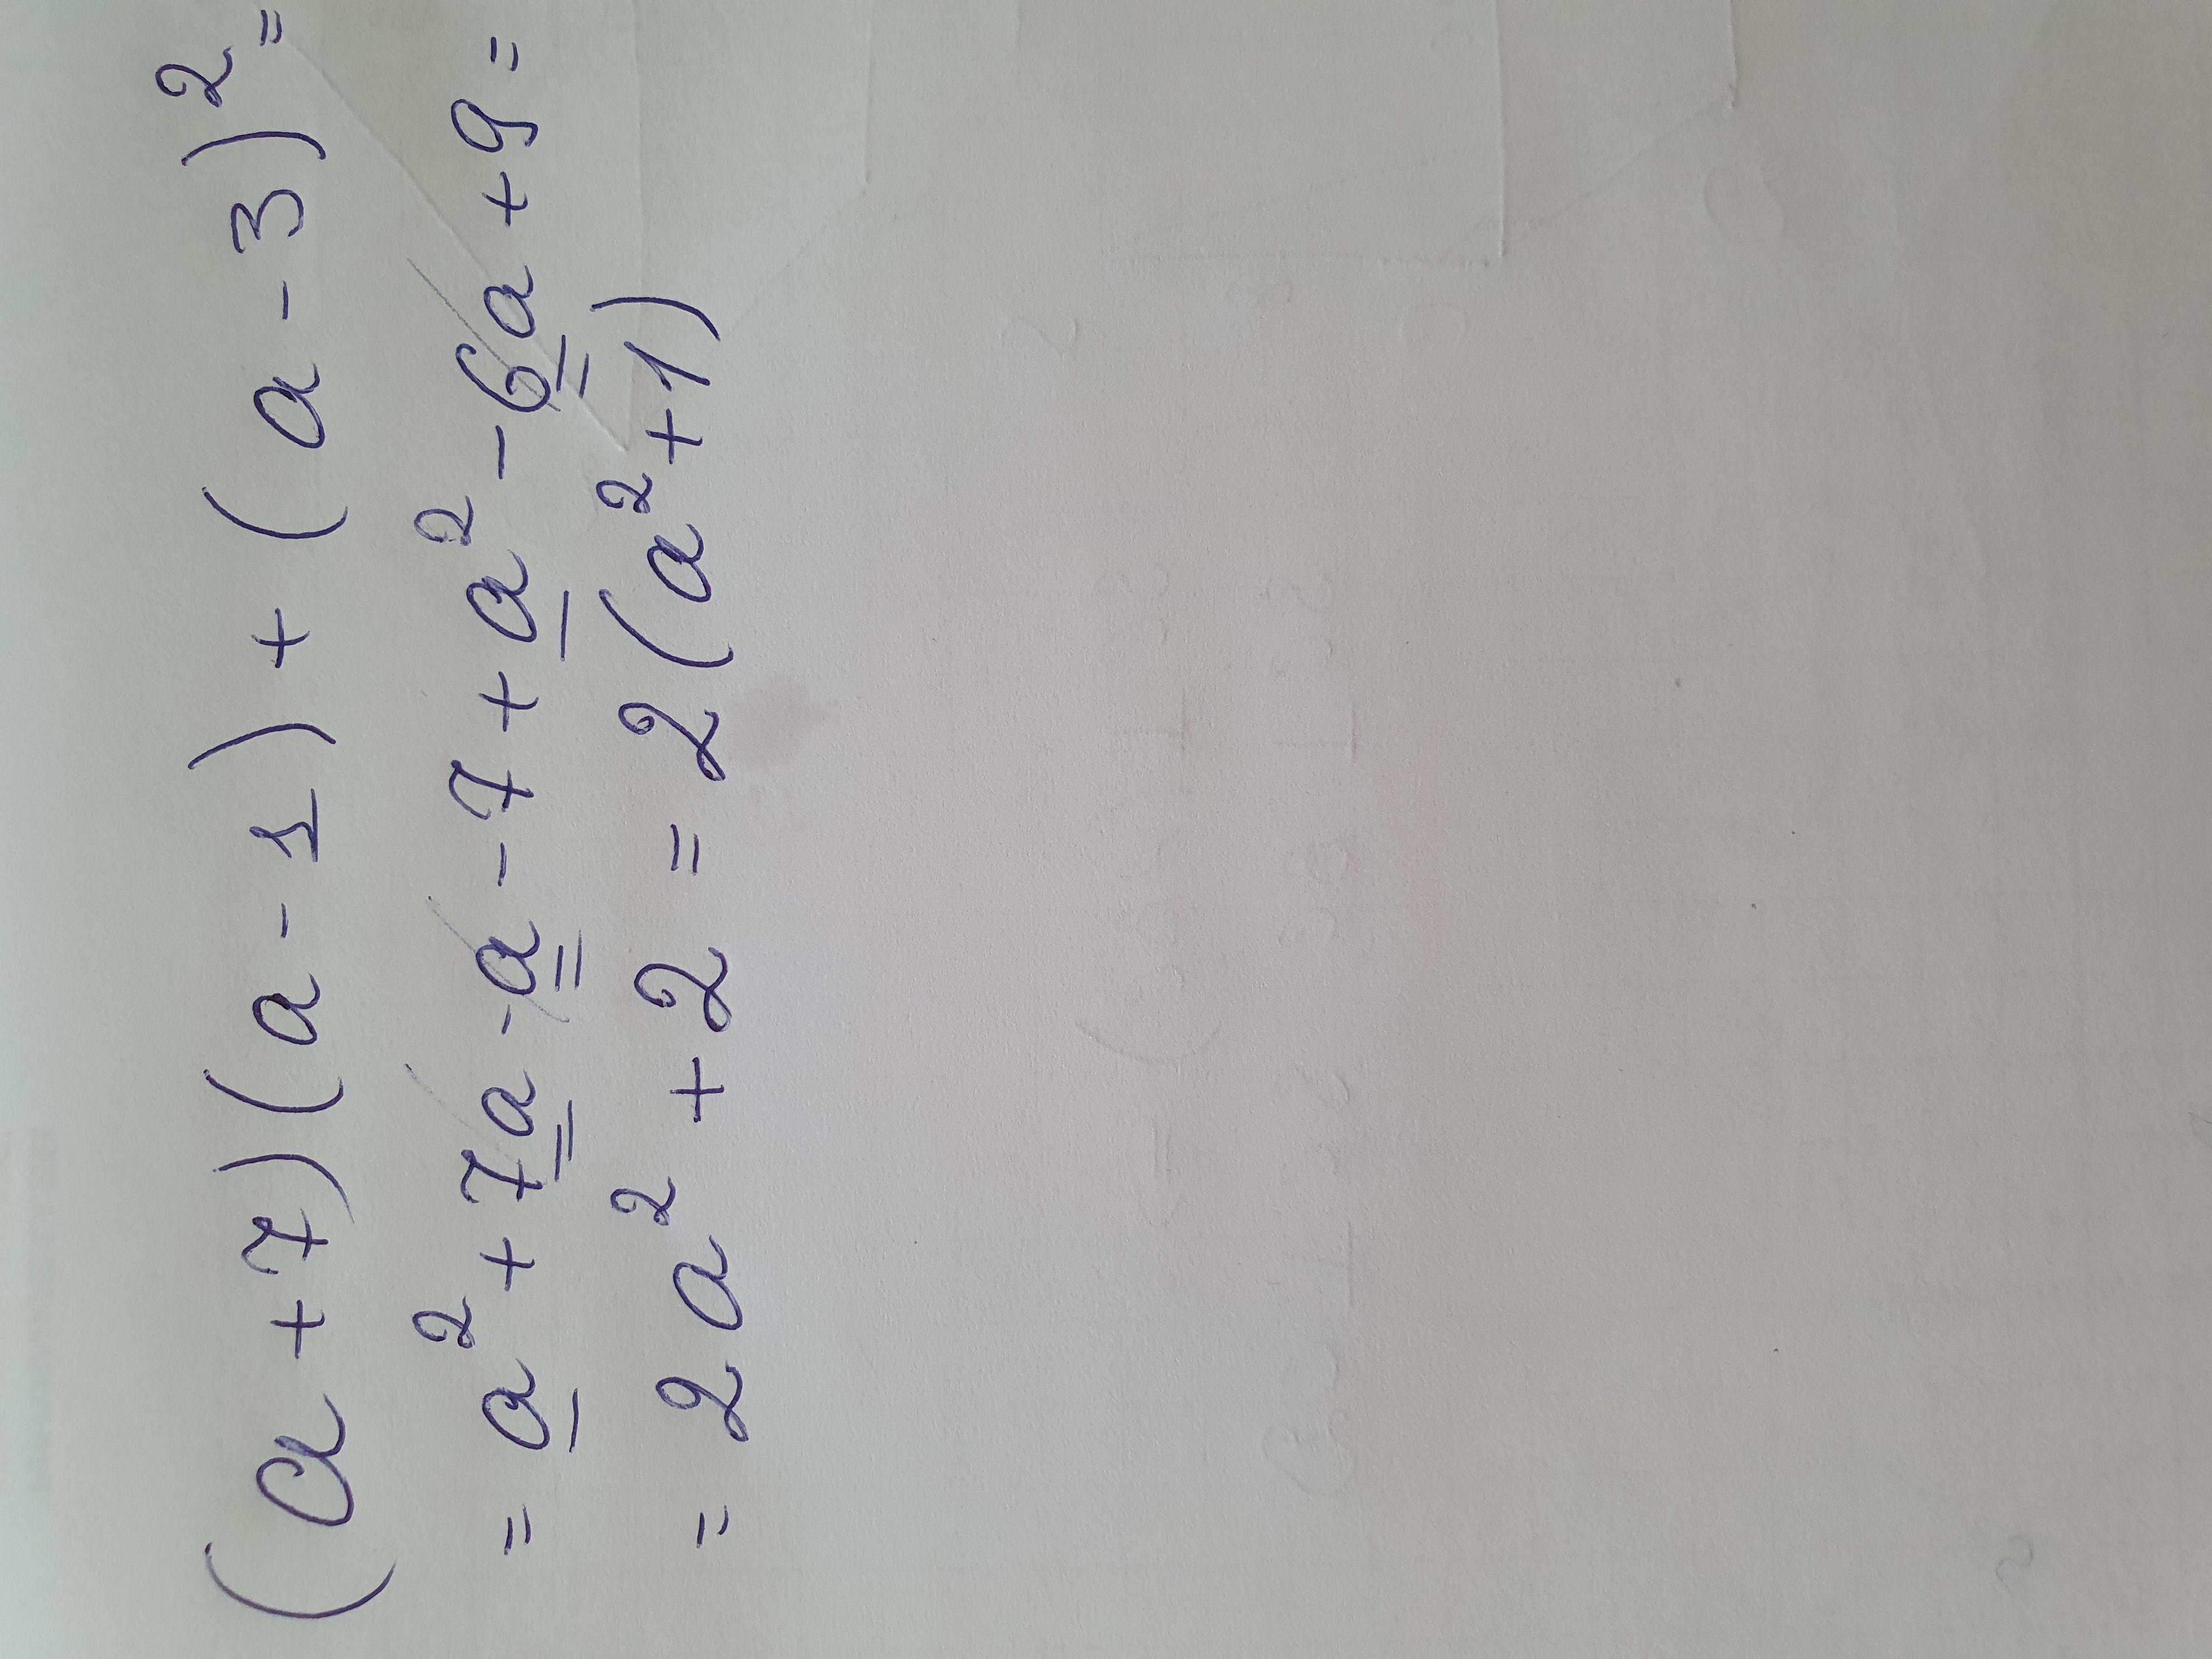 (a+7)(a-1)+(a-3)²=
=a²+7a-a-7+a²-6a+9=
=2a²+2=2(a²+1)